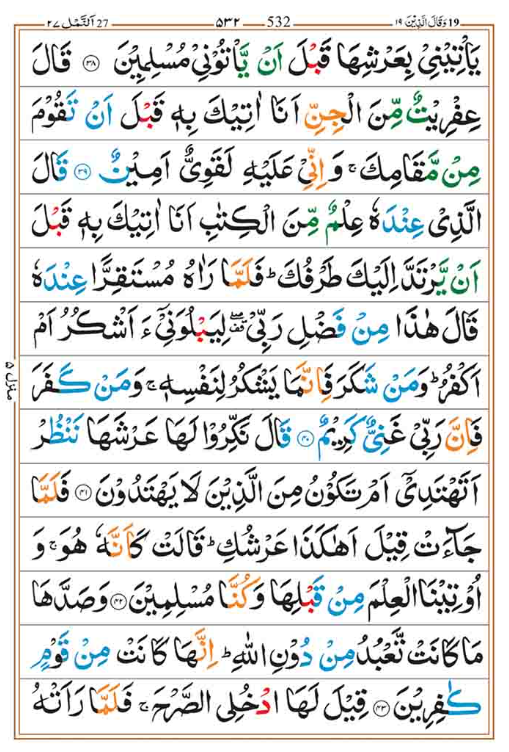 19 وَقَالَ الَّذِيْنَ ١٩ 532 ۵۳۲ 27 اَلنَّمْل ٢٧
يَاْتِيْنِيْ بِعَرْشِهَا قَبْلَ اَنْ يَّاْتُوْنِيْ مُسْلِمِيْنَ ۝۳۸ قَالَ
عِفْرِيْتٌ مِّنَ الْجِنِّ اَنَا اٰتِيْكَ بِهٖ قَبْلَ اَنْ تَقُوْمَ
مِنْ مَّقَامِكَ ۚ وَاِنِّيْ عَلَيْهِ لَقَوِيٌّ اَمِيْنٌ ۝۳۹ قَالَ
الَّذِيْ عِنْدَهٗ عِلْمٌ مِّنَ الْكِتٰبِ اَنَا اٰتِيْكَ بِهٖ قَبْلَ
اَنْ يَّرْتَدَّ اِلَيْكَ طَرْفُكَ ؕ فَلَمَّا رَاٰهُ مُسْتَقِرًّا عِنْدَهٗ
قَالَ هٰذَا مِنْ فَضْلِ رَبِّيْ ۗ لِيَبْلُوَنِيْٓ ءَاَشْكُرُ اَمْ
اَكْفُرُ ؕ وَمَنْ شَكَرَ فَاِنَّمَا يَشْكُرُ لِنَفْسِهٖ ۚ وَمَنْ كَفَرَ
فَاِنَّ رَبِّيْ غَنِيٌّ كَرِيْمٌ ۝۴۰ قَالَ نَكِّرُوْا لَهَا عَرْشَهَا نَنْظُرْ
اَتَهْتَدِيْٓ اَمْ تَكُوْنُ مِنَ الَّذِيْنَ لَا يَهْتَدُوْنَ ۝۴۱ فَلَمَّا
جَآءَتْ قِيْلَ اَهٰكَذَا عَرْشُكِ ؕ قَالَتْ كَاَنَّهٗ هُوَ ۚ وَ
اُوْتِيْنَا الْعِلْمَ مِنْ قَبْلِهَا وَكُنَّا مُسْلِمِيْنَ ۝۴۲ وَصَدَّهَا
مَا كَانَتْ تَّعْبُدُ مِنْ دُوْنِ اللّٰهِ ؕ اِنَّهَا كَانَتْ مِنْ قَوْمٍ
كٰفِرِيْنَ ۝۴۳ قِيْلَ لَهَا ادْخُلِي الصَّرْحَ ۚ فَلَمَّا رَاَتْهُ
منزل ۵